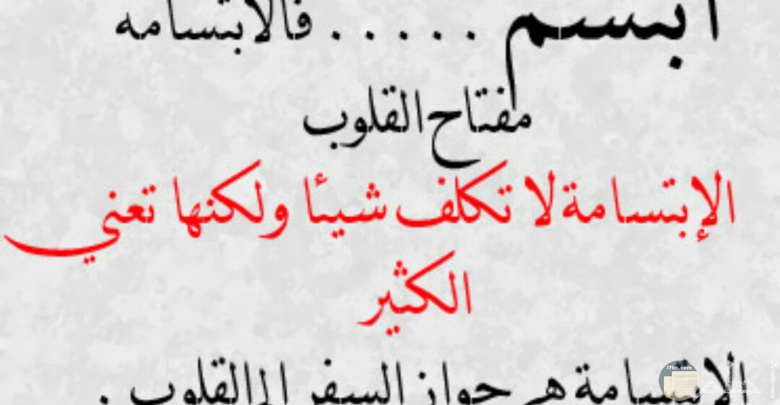 ابتسم ..... فالابتسامه
مفتاح القلوب
الإبتسامة لا تكلف شيئا ولكنها تعني
الكثير
الإبتسامة هي جواز السفر إلى القلوب .